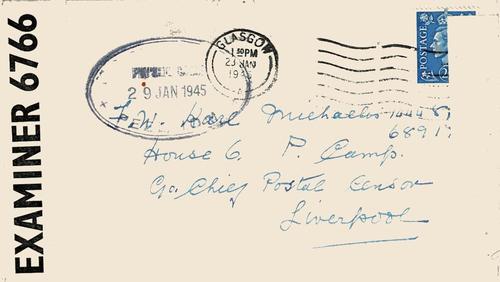 EXAMINER 6766
GLASGOW
1 30 PM
23 JAN
194
29 JAN 1945
POSTAGE
2
Karl Michaelis
6891
House 6. P. Camp.
Co. Chief Postal Censor
Liverpool